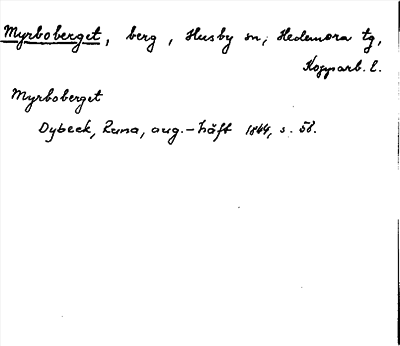 Myrboberget, berg, Husby sn, Hedemora tg,
Kopparb. l.
Myrboberget
Dybeck, Runa, aug.-häft 1844, s. 58.